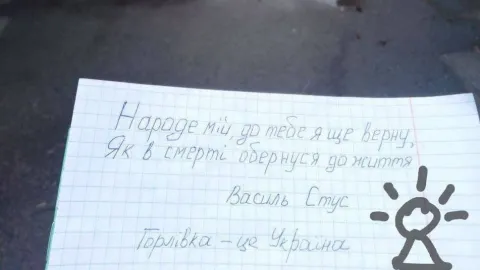 Народе мій, до тебе я ще верну,
Як в смерті обернуся до життя
Василь Стус
Горлівка – це Україна